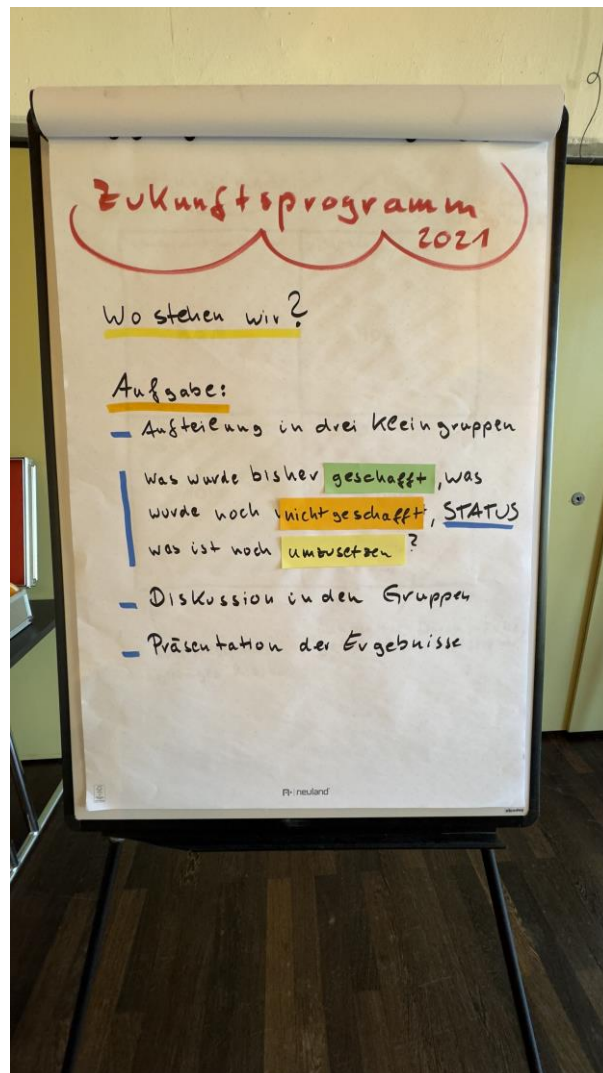 Zukunftsprogramm
2021
Wo stehen wir?
Aufgabe:
– Aufteilung in drei Kleingruppen
Was wurde bisher geschafft, was
wurde noch nicht geschafft, STATUS
was ist noch umzusetzen?
– Diskussion in den Gruppen
– Präsentation der Ergebnisse
neuland